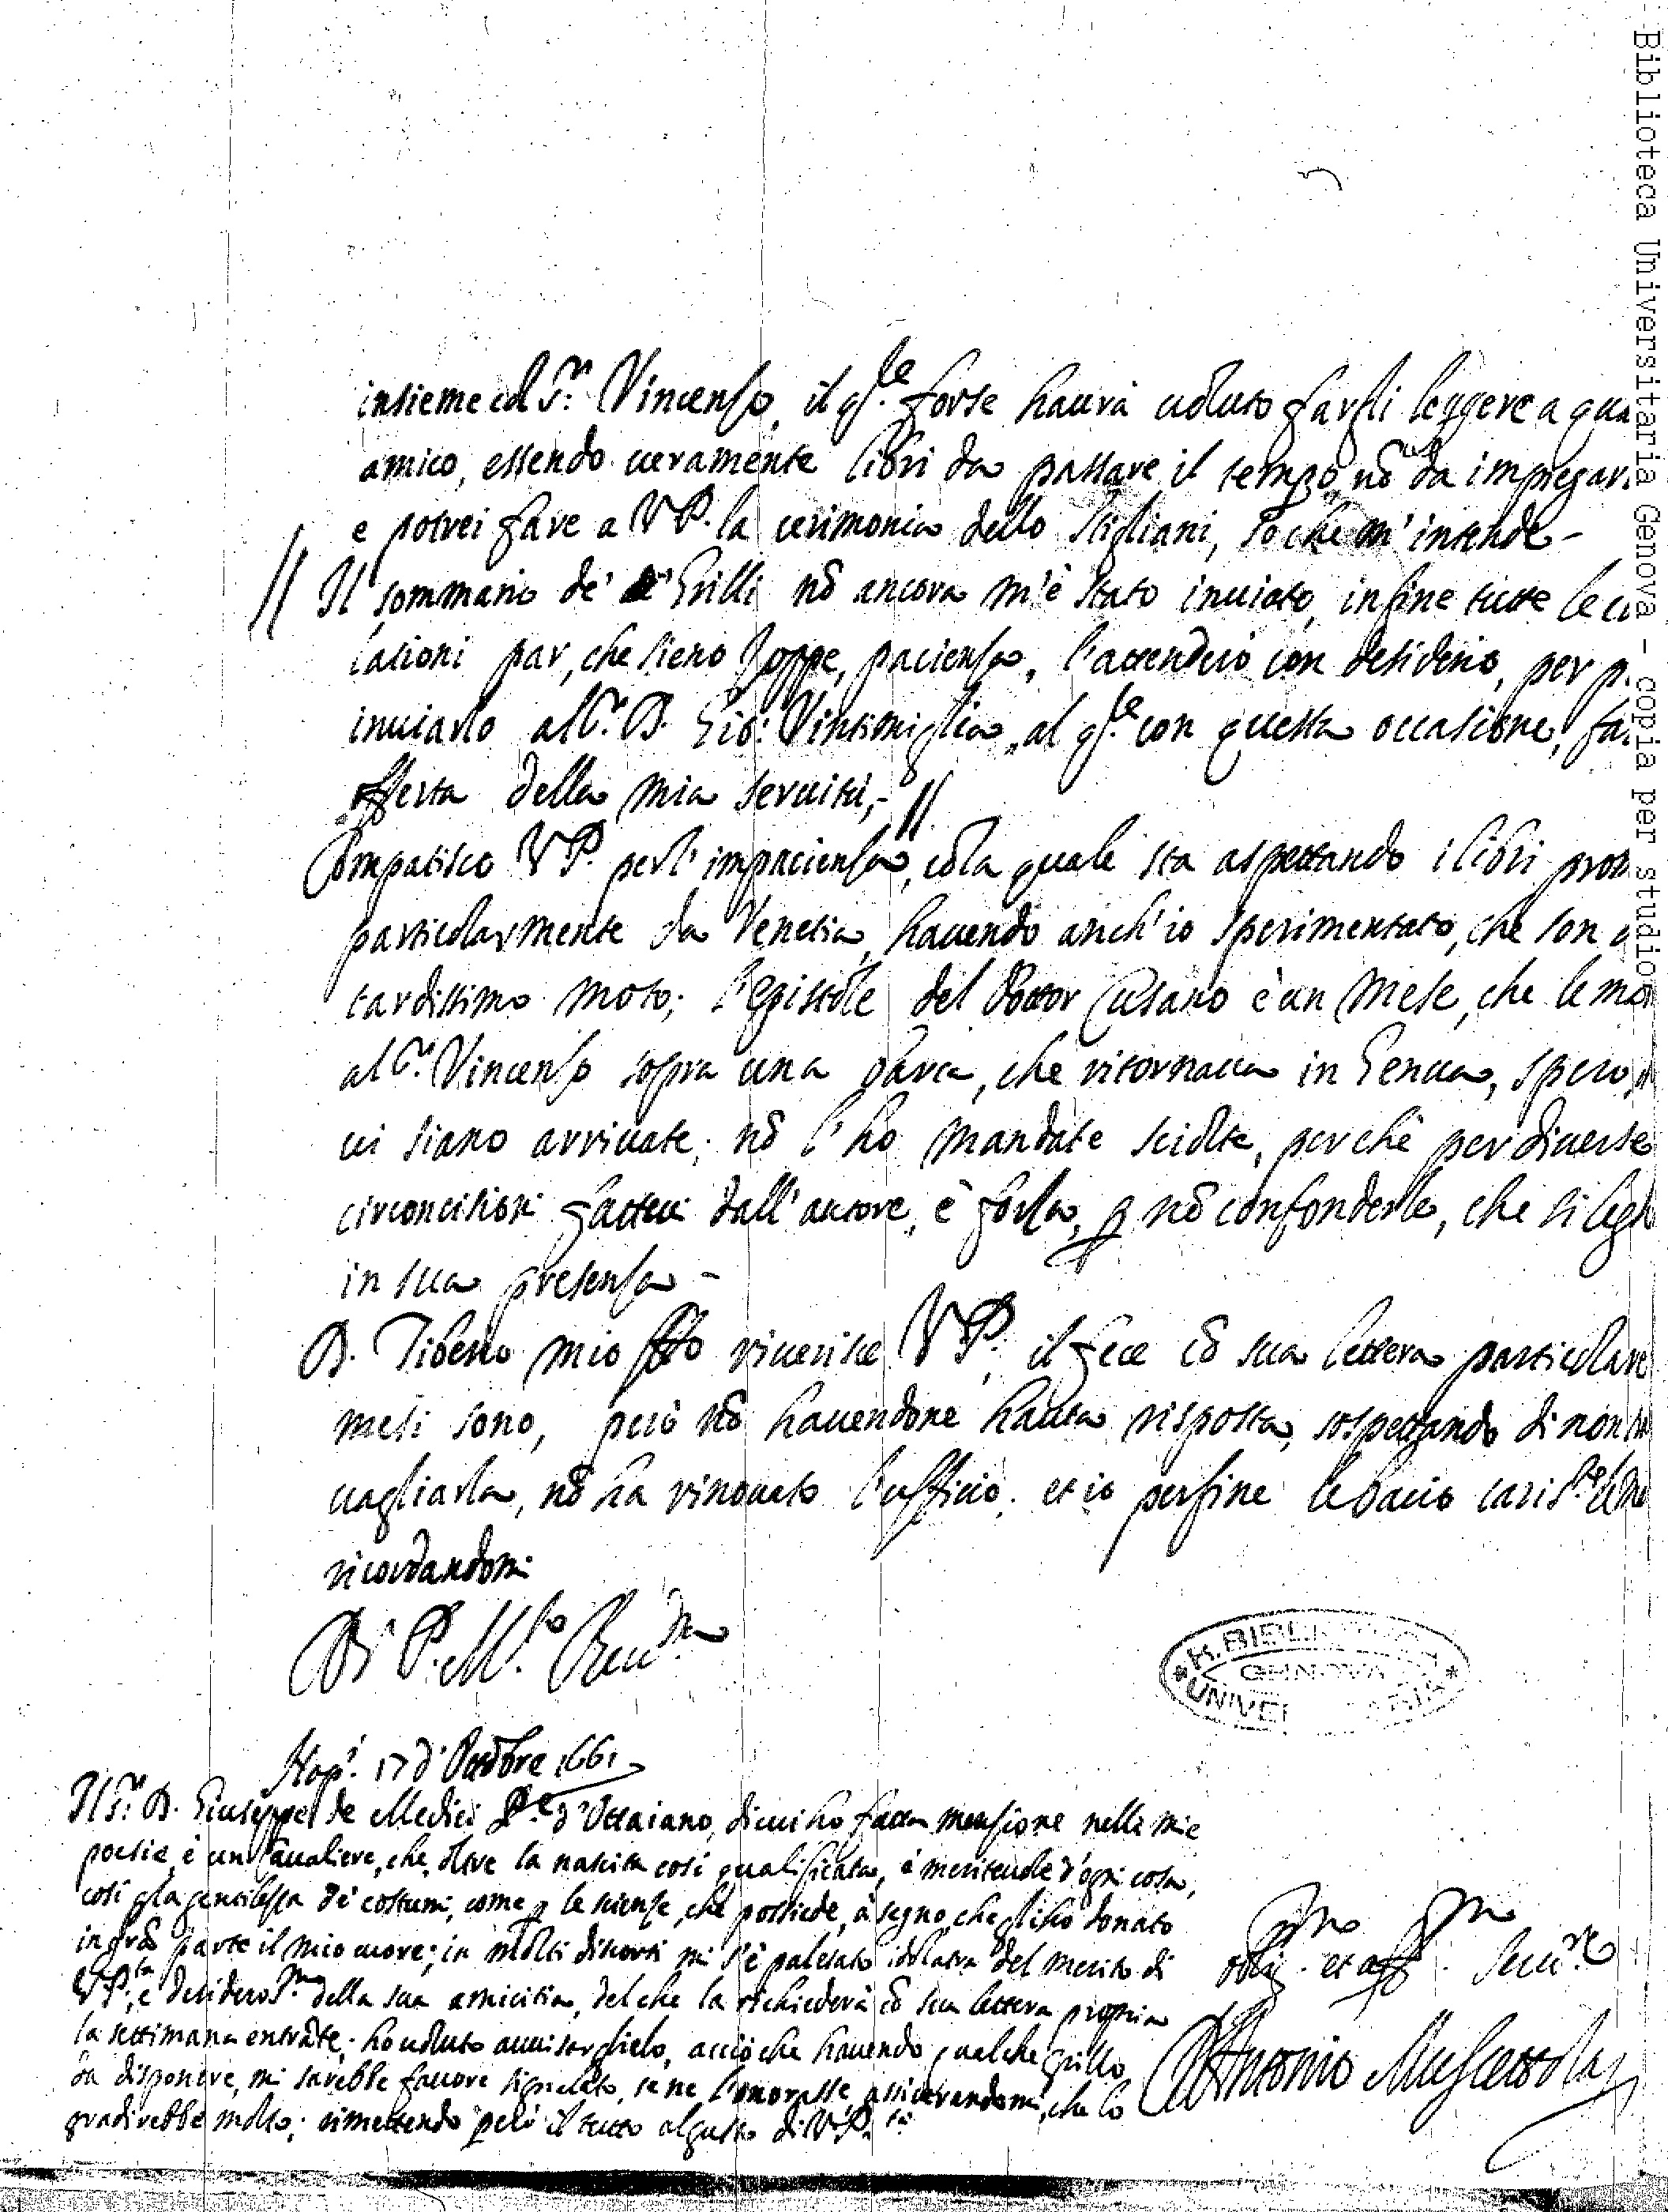 insieme col S.r Vincenzo, il q.le forse haurà uoluto farli leggere a qua
amico, essendo ueramente libri da passare il tempo, nõ da impiegar
e potrei fare a V.P. la cerimonia dello Stigliani, so che m'intende-
// Il sommario de' Grilli nõ ancora m'è stato inuiato, infine tutte le
par, che sieno zoppe, pacienza, l'attenderò con desiderio, per p
inuiarlo al S.r D. Gio: Vintimiglia, al q.le con questa occasione, fa
offerta della mia seruitù,- //
Compatisco V.P. per l'impacienza, cõ la quale sta aspettando i libri prom
particolarmente da Venetia, hauendo anch'io sperimentato, che son
tardissimo moto; l'Epistole del Dottor Cusano è un mese, che le ma
al S.r Vincenzo sopra una barca, che ritornaua in Genua, spero
ui siano arriuate; nõ l'ho mandate sciolte, perchè per diuerse
circoncisioni fatteui dall'autore, è forza, p nõ confonderle, che si legh
in sua presenza-
D. Tiberio mio riuerisce V.P., il fece cõ sua lettera particolare
mesi sono, però nõ hauendone hauta risposta, sospettando di non
uagliarla, nõ ha rinouato l'ufficio. et io per fine le bacio
ricordandomi
Di P. M.to Reu.da
Nap.i 17 d'Ottobre 1661
Il S.r D. Giuseppe de Medici P.e d'Ottaiano, di cui ho fatta menzione nelle mie
poesie, è un Caualiere, che, oltre la nascita così qualificata, è meriteuole d'ogni cosa,
così p la gentilezza de' costumi, come p le scienze, che possiede, à segno, che gli hò donato
in grã parte il mio cuore; in molti discorsi mi s'è palesato idolatra del merito di
V.P.tà, e desideros.mo della sua amicitia, del che la richiederà cõ sua lettera propria
la settimana entrãte; ho uoluto auuisarglielo, acciò che hauendo qualche grillo
da disponere, mi sarebbe fauore signalato, se ne l'onorasse, assicurandomi, che lo
gradirebbe molto; rimettendo però il tutto al gusto di V.P.tà
oblig. et aff. Seru.re
Antonio Muscettola
R. BIBLIOTECA
GENOVA
UNIVERSITARIA
Biblioteca Universitaria Genova - copia per studio